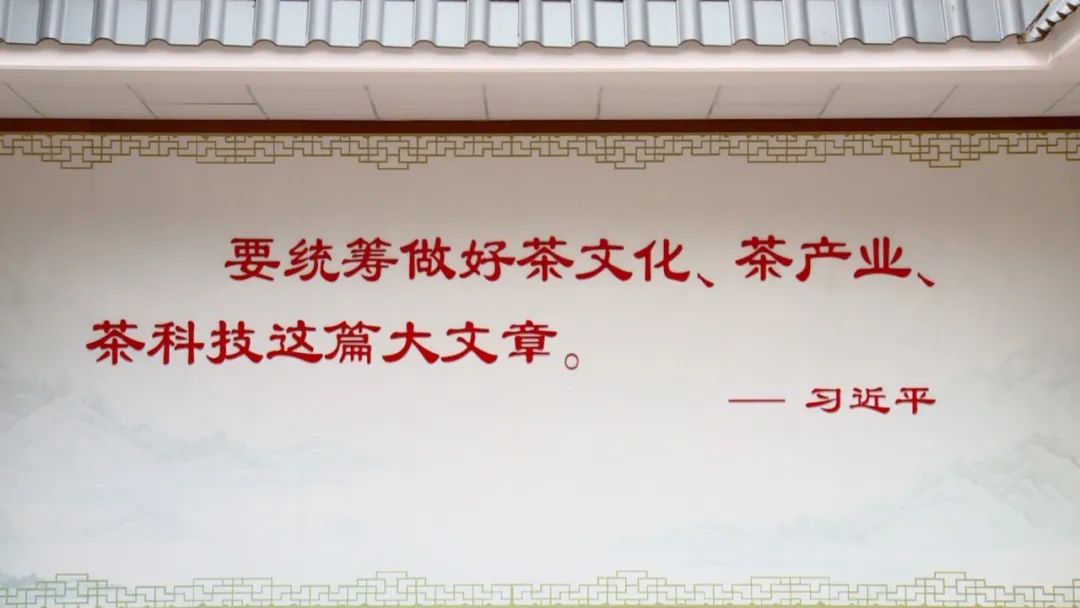 要统筹做好茶文化、茶产业、
茶科技这篇大文章。
—— 习近平